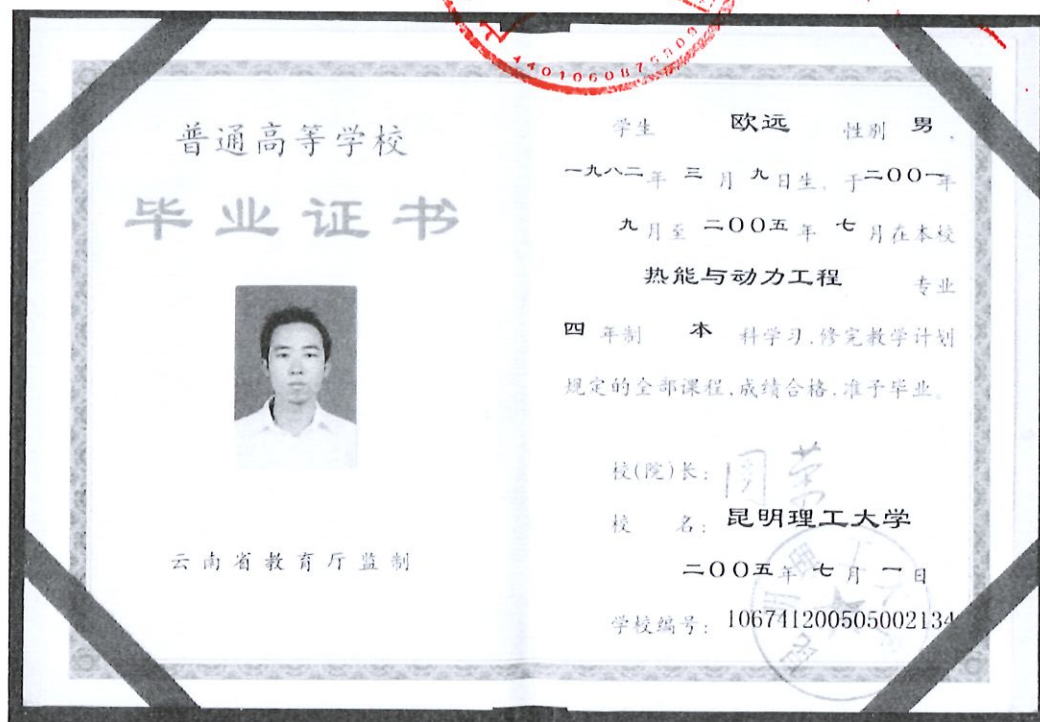 4401060875009
普通高等学校
毕业证书
云南省教育厅监制
学生 欧远 性别 男、
一九八二年 三月 九日生、于二〇〇一年
九月至 二〇〇五年 七月在本校
热能与动力工程 专业
四年制 本科学习，修完教学计划
规定的全部课程，成绩合格，准予毕业。
校(院)长：
校 名：昆明理工大学
二〇〇五年 七月 一日
学校编号：106741200505002134